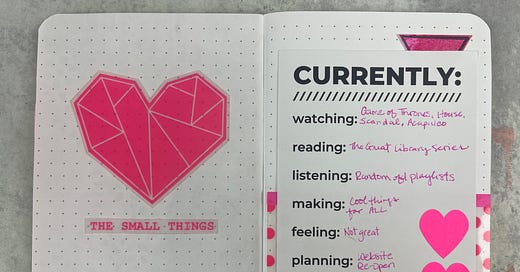 THE SMALL THINGS
CURRENTLY:
watching: Game of Thrones, House,
Scandal, Acapulco
reading: The Great Library Series
listening: Random old playlists
making: Cool things
for ALL
feeling: Not great
planning: Website
Re-Open